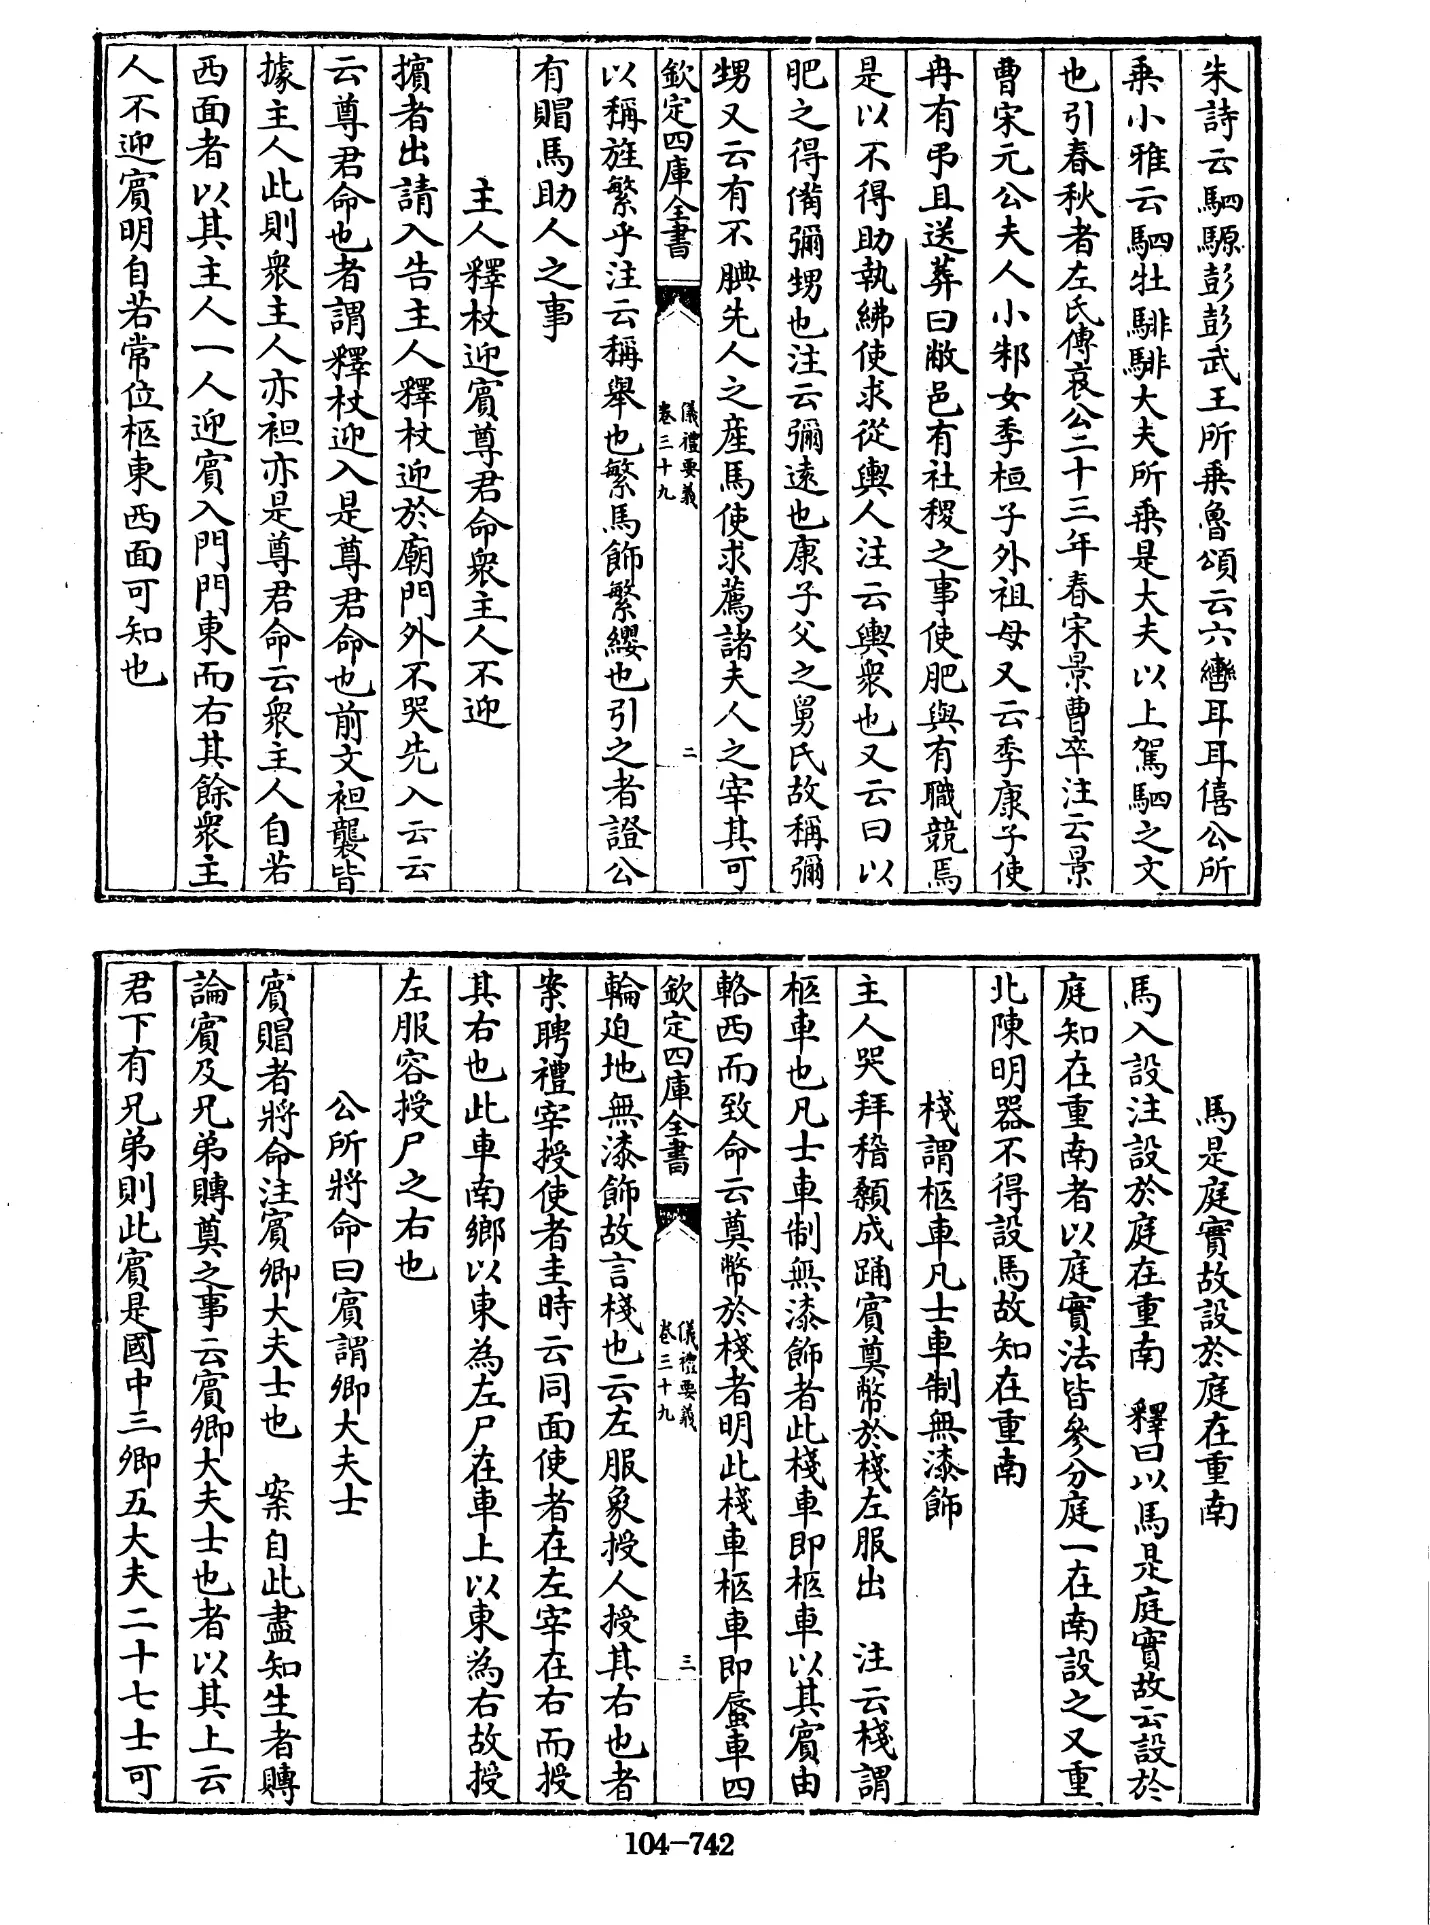 朱詩云駟騵彭彭武王所乗魯頌云六轡耳耳僖公所
乗小雅云駟牡騑騑大夫所乗是大夫以上駕駟之文
也引春秋者左氏傳哀公二十三年春宋景曹卒注云景
曹宋元公夫人小邾女季桓子外祖母又云季康子使
冉有弔且送葬曰敝邑有社稷之事使肥與有職競焉
是以不得助執紼使求從輿人注云輿衆也又云曰以
肥之得備彌甥也注云彌遠也康子父之舅氏故稱彌
甥又云有不腆先人之産馬使求薦諸夫人之宰其可
欽定四庫全書
儀禮要義
卷三十九
二
以稱旌繁乎注云稱舉也繁馬飾繁纓也引之者證公
有賵馬助人之事
主人釋杖迎賓尊君命衆主人不迎
擯者出請入告主人釋杖迎於廟門外不哭先入云云
云尊君命也者謂釋杖迎入是尊君命也前文袒襲皆
據主人此則衆主人亦袒亦是尊君命云衆主人自若
西面者以其主人一人迎賓入門門東而右其餘衆主
人不迎賓明自若常位柩東西面可知也
馬是庭實故設於庭在重南
馬入設注設於庭在重南 釋曰以馬是庭實故云設於
庭知在重南者以庭實法皆參分庭一在南設之又重
北陳明器不得設馬故知在重南
棧謂柩車凡士車制無漆飾
主人哭拜稽顙成踊賓奠幣於棧左服出 注云棧謂
柩車也凡士車制無漆飾者此棧車即柩車以其賓由
輅西而致命云奠幣於棧者明此棧車柩車即蜃車四
欽定四庫全書
儀禮要義
卷三十九
三
輪迫地無漆飾故言棧也云左服象授人授其右也者
案聘禮宰授使者圭時云同面使者在左宰在右而授
其右也此車南鄉以東為左尸在車上以東為右故授
左服容授尸之右也
公所將命曰賓謂卿大夫士
賓賵者將命注賓卿大夫士也 案自此盡知生者賻
論賓及兄弟賻奠之事云賓卿大夫士也者以其上云
君下有兄弟則此賓是國中三卿五大夫二十七士可
104-742